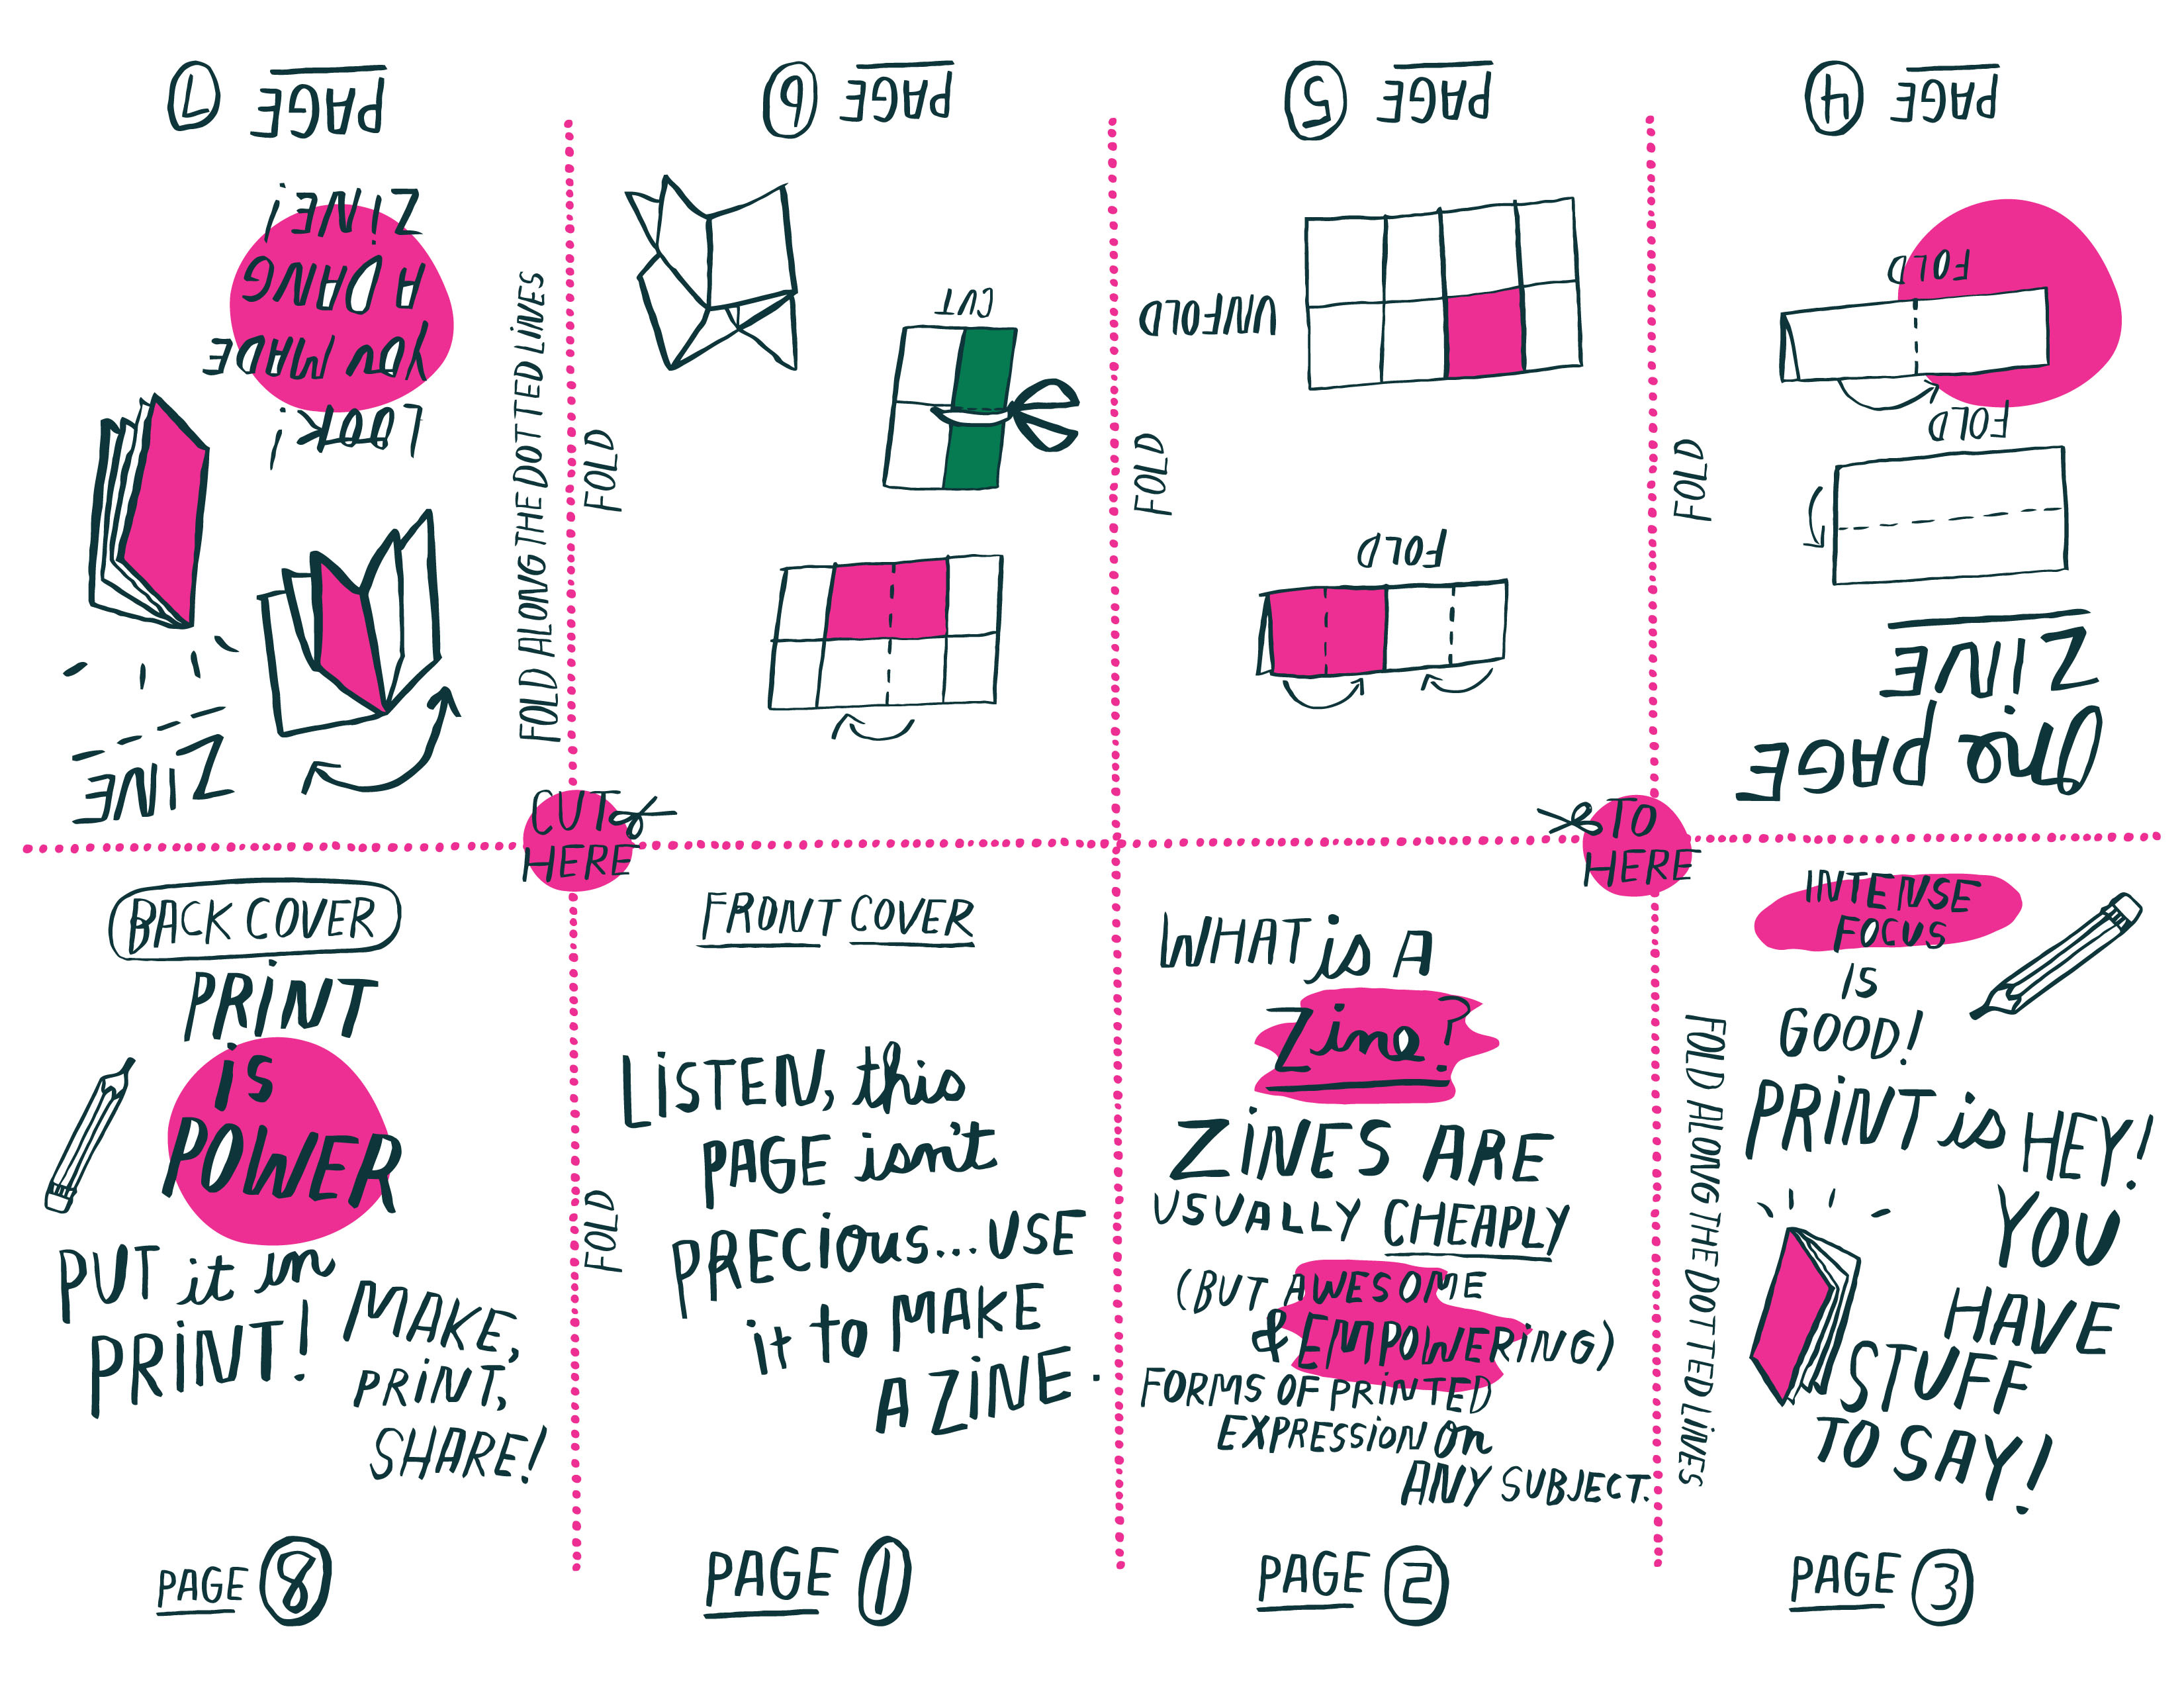 PAGE 7
LOOK!
YOU MADE
A DANG
ZINE!
ZINE
FOLD ALONG THE DOTTED LINES
FOLD
PAGE 6
CUT
FOLD
PAGE 5
UNFOLD
FOLD
FOLD
PAGE 4
One PAGE
ZINE
FOLD
FOLD
CUT
HERE
TO
HERE
BACK COVER
PRINT
is
POWER
PUT it in
PRINT!
MAKE,
PRINT,
SHARE!
PAGE 8
FOLD
FRONT COVER
LISTEN, this
PAGE isn't
PRECious... USE
it to MAKE
A ZINE.
PAGE 1
WHAT is A
Zine?
ZINES ARE
USUALLY CHEAPLY
(BUT AWESOME
& EMPOWERING)
FORMS OF PRINTED
EXPRESSION On
ANY SUBJECT.
PAGE 2
FOLD ALONG THE DOTTED LINES
INTENSE
FOCUS
IS
GOOD!
PRINT is HEY!
YOU
HAVE
STUFF
TO SAY!
PAGE 3